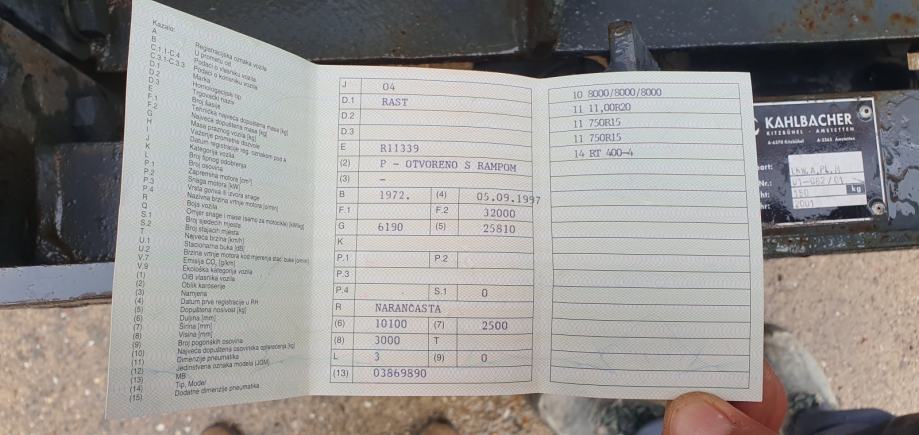 Kazalo:
A Registracijska oznaka vozila
B U prometu od
C.1.1-C.4 Podaci o vlasniku vozila
C.3.1-C.3.3 Podaci o korisniku vozila
D.1 Marka
D.2 Homologacijski tip
D.3 Trgovački naziv
E Broj šasije
F.1 Tehnička najveća dopuštena masa [kg]
F.2 Najveća dopuštena masa [kg]
G Masa praznog vozila [kg]
H Važenje prometne dozvole
I Datum registracije reg. oznakom pod A
J Kategorija vozila
K Broj tipnog odobrenja
L Broj osovina
P.1 Zapremina motora [cm³]
P.2 Snaga motora [kW]
P.3 Vrsta goriva ili izvora snage
P.4 Nazivna brzina vrtnje motora [o/min]
R Boja vozila
Q Omjer snage i mase (samo za motocikle) [kW/kg]
S.1 Broj sjedećih mjesta
S.2 Broj stajaćih mjesta
T Najveća brzina [km/h]
U.1 Stacionarna buka [dB]
U.2 Brzina vrtnje motora kod mjerenja stac. buke [o/min]
V.7 Emisija CO₂ [g/km]
V.9 Ekološka kategorija vozila
(1) OIB vlasnika vozila
(2) Oblik karoserije
(3) Namjena
(4) Datum prve registracije u RH
(5) Dopuštena nosivost [kg]
(6) Duljina [mm]
(7) Širina [mm]
(8) Visina [mm]
(9) Broj pogonskih osovina
(10) Najveća dopuštena osovinska opterećenja [kg]
(11) Dimenzije pneumatika
(12) Jedinstvena oznaka modela (JOM)
(13) MB
(14) Tip, Model
(15) Dodatne dimenzije pneumatika
J 04
D.1 RAST
D.2
D.3
E R11339
(2) P - OTVORENO S RAMPOM
(3) -
B 1972. (4) 05.09.1997
F.1 F.2 32000
G 6190 (5) 25810
K
P.1 P.2
P.3
P.4 S.1 0
R NARANČASTA
(6) 10100 (7) 2500
(8) 3000 T
L 3 (9) 0
(13) 03869890
10 8000/8000/8000
11 11,00R20
11 750R15
11 750R15
14 RT 400-4
KAHLBACHER
KITZBÜHEL - AMSTETTEN
kg
2001